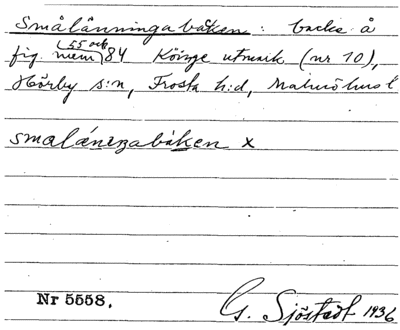 Smålänningabacken: backe å
fig. nrem (55 och) 84 Köinge utmark (nr 10),
Hörby s:n, Frosta h:d, Malmöhus l
smaláneŋabáken x
Nr 5558.
G. Sjöstedt 1936